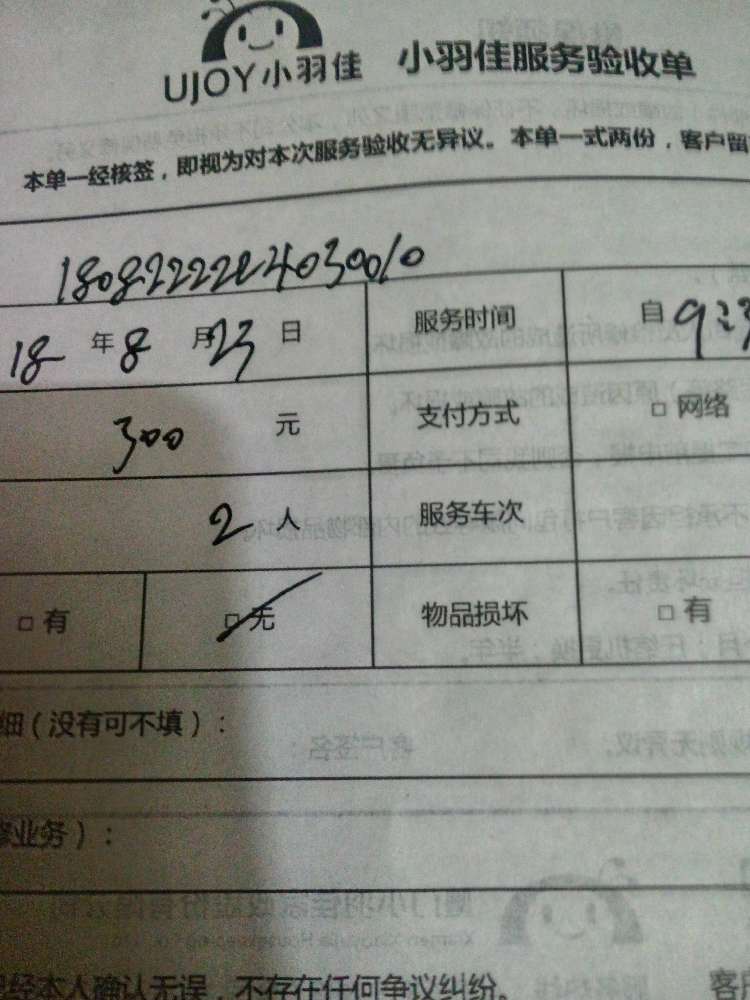 UJOY小羽佳 小羽佳服务验收单
本单一经核签，即视为对本次服务验收无异议。本单一式两份，客户留
1808222224030010
18 年 8 月 23 日 服务时间 自 9:3
300 元 支付方式 □ 网络
2 人 服务车次
□ 有 □ 无 物品损坏 □ 有
细（没有可不填）：
修业务）：
经本人确认无误，不存在任何争议纠纷。 客